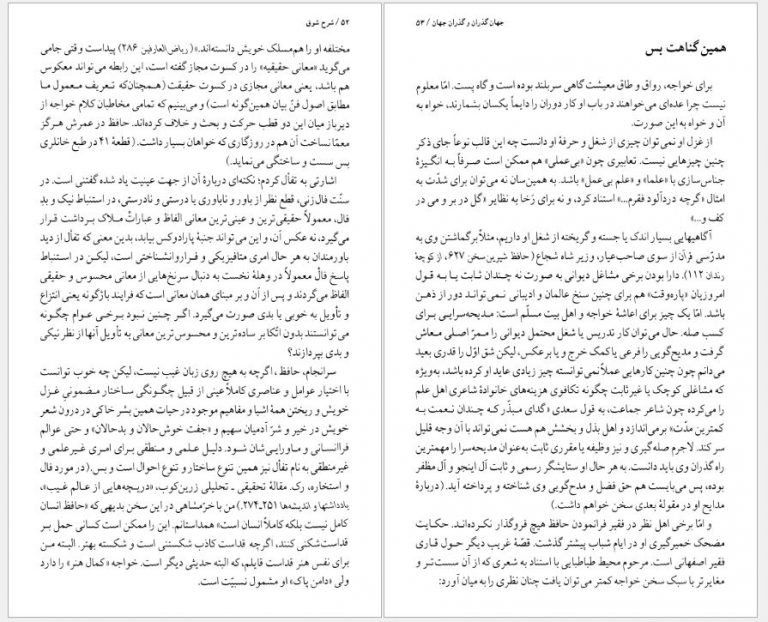 جهان گذران و گذران جهان / ۵۳
همین گناهت بس
برای خواجه، رواق و طاق معیشت گاهی سربلند بوده است و گاه پست. امّا معلوم
نیست چرا عده‌ای می‌خواهند در باب او کار دوران را دایماً یکسان بشمارند، خواه به
آن و خواه به این صورت.
از غزل او نمی‌توان چیزی از شغل و حرفهٔ او دانست چه این قالب نوعاً جای ذکر
چنین چیزهایی نیست. تعابیری چون «بی‌عملی» هم ممکن است صرفاً به انگیزهٔ
جناس‌سازی با «علما» و «علم بی‌عمل» باشد. به همین‌سان نه می‌توان برای شدّت به
امثال «گرچه دردآلود فقرم...» استناد کرد، و نه برای رَخا به نظایر «گل در بر و می در
کف و...»
آگاهیهایی بسیار اندک یا جسته و گریخته از شغل او داریم، مثلاً برگماشتن وی به
مدرّسی قرآن از سوی صاحب‌عیار، وزیر شاه شجاع (حافظ شیرین‌سخن ۶۲۷، از کوچهٔ
رندان ۱۱۲). دارا بودن برخی مشاغل دیوانی به صورت نه چندان ثابت یا به قول
امروزیان «پاره‌وقت» هم برای چنین سنخ عالمان و ادیبانی نمی‌تواند دور از ذهن
باشد. امّا یک چیز برای اعاشهٔ خواجه و اهل بیت مسلّم است: مدیحه‌سرایی برای
کسب صله. حال می‌توان کار تدریس یا شغل محتمل دیوانی را ممرّ اصلی معاش
گرفت و مدیح‌گویی را فرعی یا کمک خرج و یا برعکس، لیکن شق اوّل را قدری بعید
می‌دانم چون چنین کارهایی عملاً نمی‌توانسته چیز زیادی عاید او کرده باشد، به‌ویژه
که مشاغلی کوچک یا غیرثابت چگونه تکافوی هزینه‌های خانوادهٔ شاعری اهل علم
را می‌کرده چون شاعر جماعت، به قول سعدی «گدای مبذّر که چندان نعمت به
کمترین مدّت» برمی‌اندازد و اهل بذل و بخشش هم هست نمی‌تواند با آن وجه قلیل
سر کند. لاجرم صله‌گیری و نیز وظیفه یا مقرری ثابت به‌عنوان مدیحه‌سرا را مهمترین
راه گذران وی باید دانست. به هر حال او ستایشگر رسمی و ثابت آل اینجو و آل مظفر
بوده، پس می‌بایست هم حق فضل و مدح‌گویی وی شناخته و پرداخته آید. (دربارهٔ
مدایح او در مقولهٔ بعدی سخن خواهم داشت.)
و امّا برخی اهل نظر در فقیر فرانمودن حافظ هیچ فروگذار نکرده‌اند. حکایت
مضحک خمیرگیری او در ایام شباب پیشتر گذشت. قصّهٔ غریب دیگر حول قاری
فقیر اصفهانی است. مرحوم محیط طباطبایی با استناد به شعری که از آن سست‌تر و
مغایرتر با سبک سخن خواجه کمتر می‌توان یافت چنان نظری را به میان آورد:
۵۲ / شرح شوق
مختلفه او را هم‌مسلک خویش دانسته‌اند.» (ریاض‌العارفین ۲۸۶) پیداست وقتی جامی
می‌گوید «معانی حقیقیه» را در کسوت مجاز گفته است، این رابطه می‌تواند معکوس
هم باشد، یعنی معانی مجازی در کسوت حقیقت (همچنان‌که تعریف معمول ما
مطابق اصول فنّ بیان همین‌گونه است) و می‌بینیم که تمامی مخاطبان کلام خواجه از
دیرباز میان این دو قطب حرکت و بحث و خلاف کرده‌اند. حافظ در عمرش هرگز
معمّا نساخت آن هم در روزگاری که خواهان بسیار داشت. (قطعهٔ ۴۱ در طبع خانلری
پس سست و ساختگی می‌نماید.)
اشارتی به تفأل کردم؛ نکته‌ای دربارهٔ آن از جهت عینیت یاد شده گفتنی است. در
سنّت فال‌زنی، قطع نظر از باور و ناباوری یا درستی و نادرستی، در استنباط نیک و بدِ
فال، معمولاً حقیقی‌ترین و عینی‌ترین معانی الفاظ و عبارات ملاک برداشت قرار
می‌گیرد، نه عکس آن، و این می‌تواند جنبهٔ پارادوکس بیابد، بدین معنی که تفأل از دید
باورمندان به هر حال امری متافیزیکی و فراروانشناختی است، لیکن در استنباط
پاسخ فال معمولاً در وهلهٔ نخست به دنبال سرنخ‌هایی از معانی محسوس و حقیقی
الفاظ می‌گردند و پس از آن و بر مبنای همان معانی است که فرایند باژگونه یعنی انتزاع
و تأویل به خوبی یا بدی صورت می‌گیرد. اگر چنین نبود برخی عوام چگونه
می‌توانستند بدون اتّکا بر ساده‌ترین و محسوس‌ترین معانی به تأویل آنها از نظر نیکی
و بدی بپردازند؟
سرانجام، حافظ، اگرچه به هیچ روی زبان غیب نیست، لیکن چه خوب توانست
با اختیار عوامل و عناصری کاملاً عینی از قبیل چگونگی ساختار مضمونیِ غزل
خویش و ریختن همهٔ اشیا و مفاهیم موجود در حیات همین بشر خاکی در درون شعر
خویش در خیر و شرّ آدمیان سهیم و «جفت خوش‌حالان و بدحالان» و حتی عوالم
فراانسانی و ماورایی‌شان شود. دلیل علمی و منطقی برای امری غیرعلمی و
غیرمنطقی به نام تفأل نیز همین تنوع ساختار و تنوع احوال است و بس. (در مورد فال
و استخاره، رک. مقالهٔ تحقیقی ـ تحلیلی زرین‌کوب، «دریچه‌هایی از عالم غیب»،
یادداشتها و اندیشه‌ها ۲۵۱ـ۲۷۴.) من با خرّمشاهی در این سخن بدیهی که «حافظ انسان
کامل نیست بلکه کاملاً انسان است» همداستانم. این را ممکن است کسانی حمل بر
قداست‌شکنی کنند، اگرچه قداست کاذب شکستنی است و شکسته بهتر. البته من
برای نفس هنر قداست قایلم، که البته حدیثی دیگر است. خواجه «کمال هنر» را دارد
ولی «دامن پاک» او مشمول نسبیّت است.